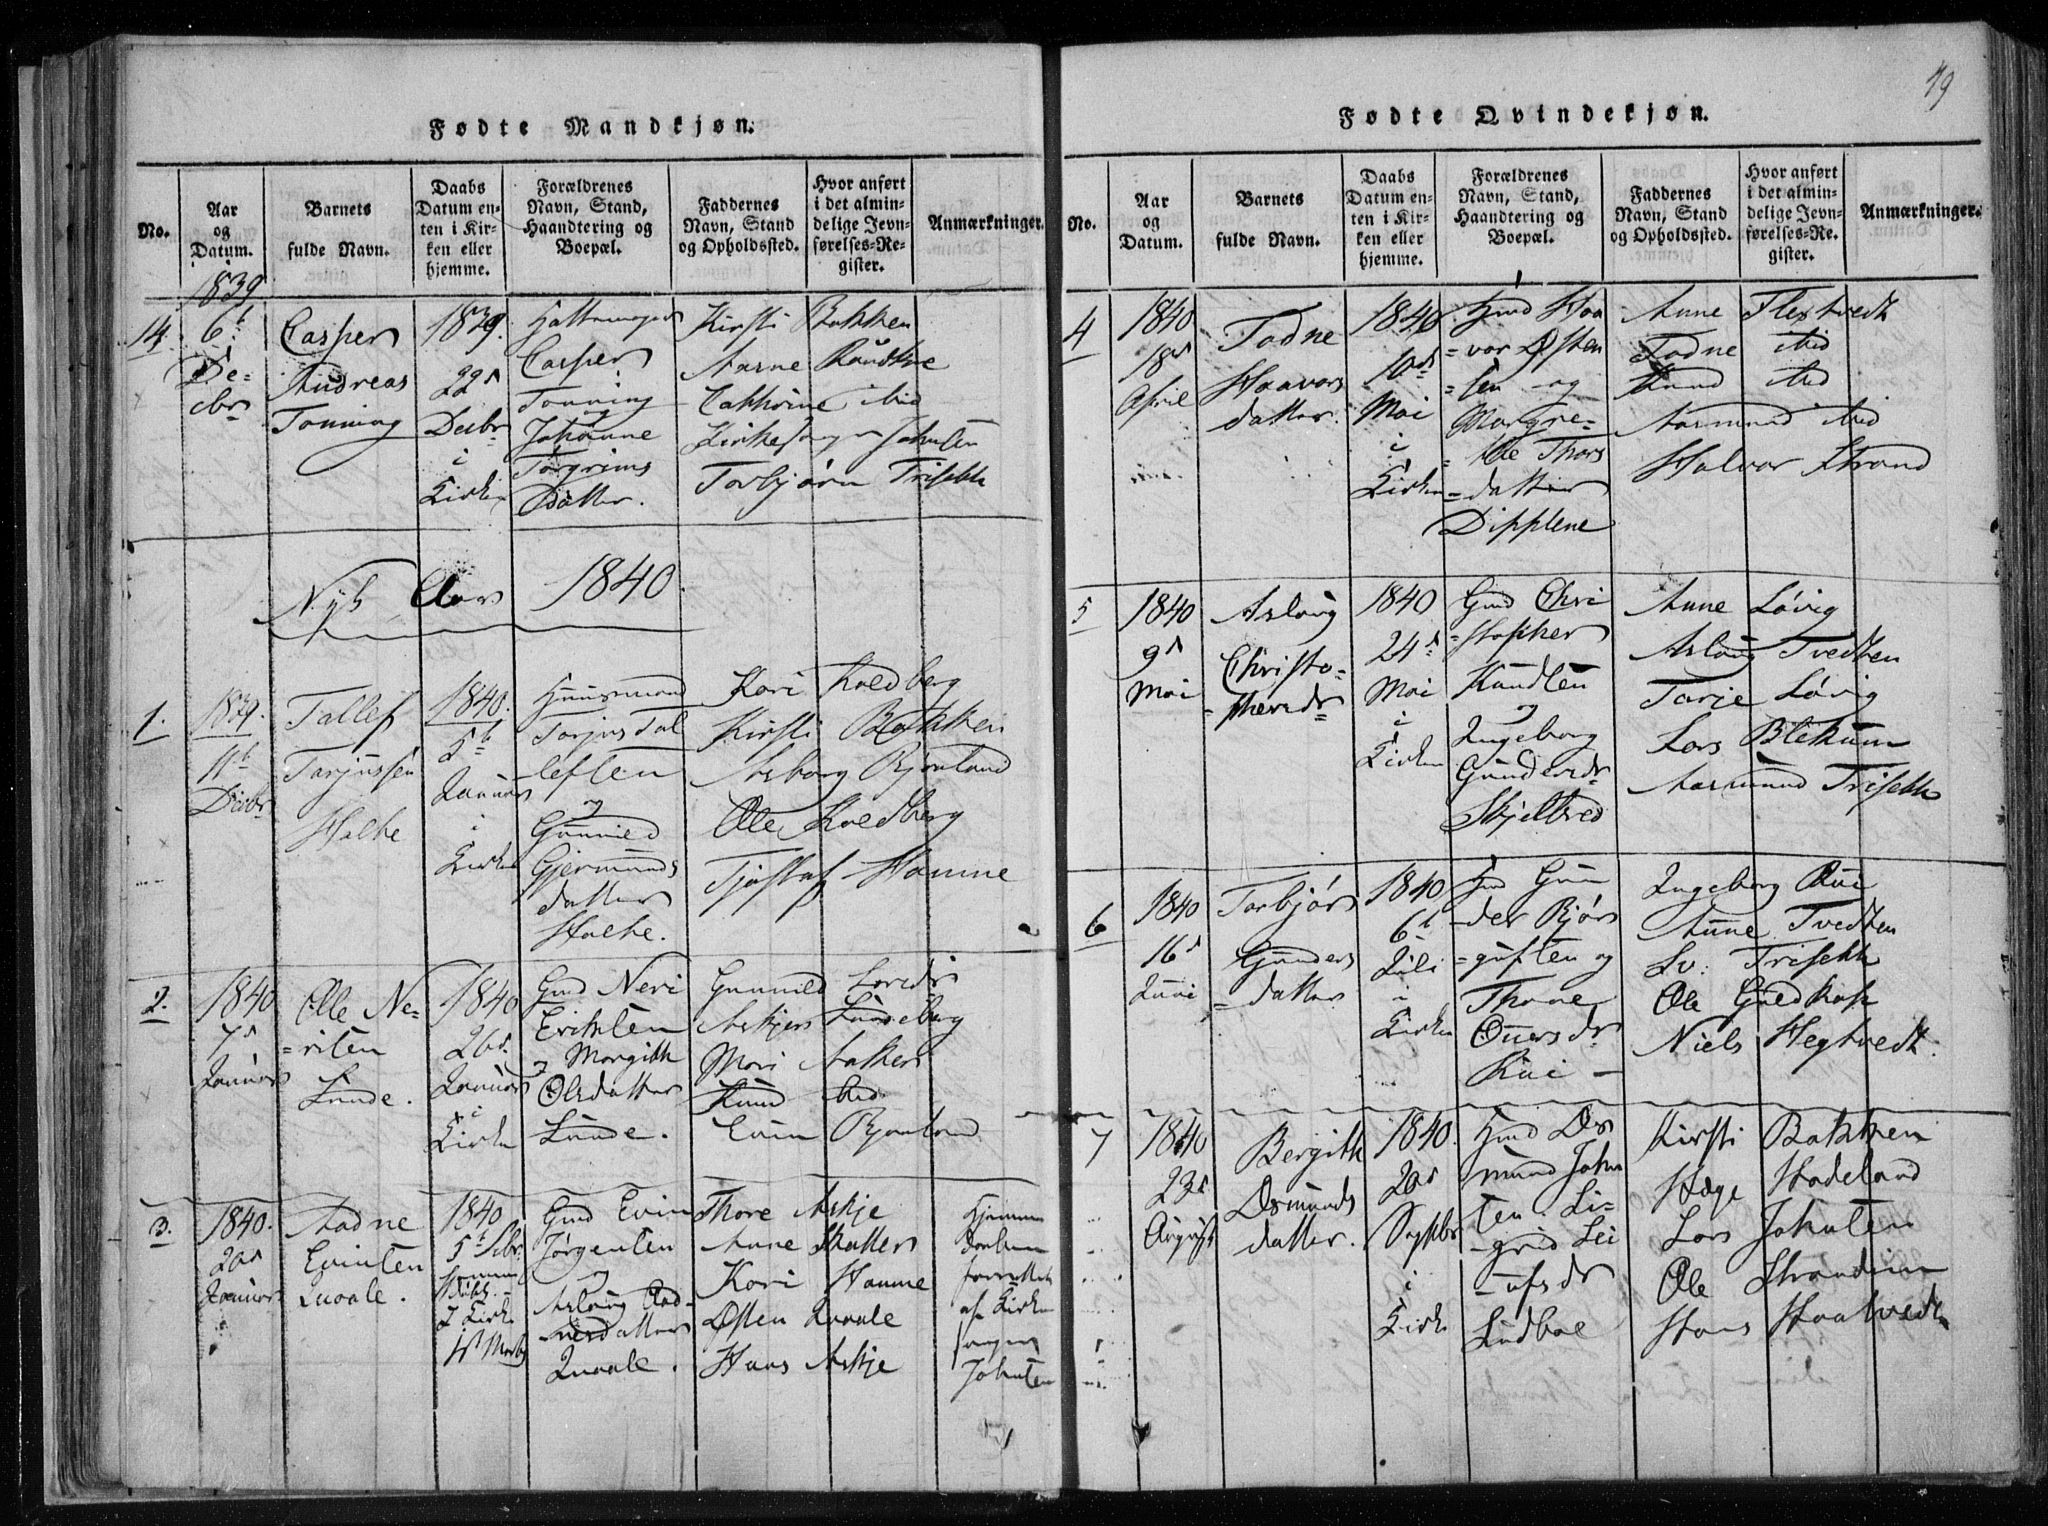 49
Fødte Mandkjøn.
No.
Aar
og
Datum.
Barnets
fulde Navn.
Daabs
Datum en-
ten i Kir-
ken eller
hjemme.
Forældrenes
Navn, Stand,
Haandtering og
Boepæl.
Faddernes
Navn, Stand
og Opholdssted.
Hvor anført
i det almin-
delige Jevn-
førelses-Re-
gister.
Anmærkninger.
14.
1839
6
De-
cbr
Casper
Andreas
Tonning
1839.
22
Decbr
i
Kirken
Casper
Tonning
og
Johanne
Torgrims
Datter.
Kirsti Bakken
Aarne
Cathrine ibid
Kirkesanger Johnsen
Torbjørn Trisett
Nyt Aar 1840.
1.
1839.
11t
Decbr
Tallef
Tarjussen
Holte
1840.
5t
Januar
i
Kirken
Huusmand
Tarjus Tal
lefsen
og
Gunnild
Gjermunds
datter
Holte.
Kari Koldberg
Kirsti Bakken
Asborg Bjonland
Ole Koldberg
Tjostaf Hamne
2.
1840
7
Januar
Ole Ne-
=risen
Lunde.
1840
26
Januar
i
Kirken
Gmd Neri
Eriksen
og Margith
Olsdatter
Lunde.
Gunnild
Askjer Lundeberg
Mari Aakers
Knud ibid
Even Bjonland
3.
1840.
20
Januar
Aadne
Evensen
Qvaale.
1840
5
Gmd Even
Jørgensen
og
Aslaug Aad-
nesdatter
Qvaale.
Thore Askje
Anne
Kari Hamne
Østen Qvaale
Hans Askje
Hjemme
daaben
forrettet
af Kirke
sanger
Johnsen
Fødte Qvindekjøn.
No.
Aar
og
Datum.
Barnets
fulde Navn.
Daabs
Datum en-
ten i Kir-
ken eller
hjemme.
Forældrenes
Navn, Stand,
Haandtering og
Boepæl.
Faddernes
Navn, Stand
og Opholdssted.
Hvor anført
i det almin-
delige Jevn-
førelses-Re-
gister.
Anmærkninger.
4
1840
18
April
Tadne
Haavors
datter.
1840
10
Mai
i
Kirken
Haa
=vor Østen
=sen og
Margre-
=the Thors
=datter
Dipplene
Anne Flestvedt
Tadne ibid
Knud ibid
Aasmund ibid
Halvor Strand
5
1840
9
Mai
Aslaug
Christo-
=phersdr
1840
24
Mai
i
Kirken
Gmd Chri
=stopher
Knudsen
og
Ingeborg
Gundersdr
Skjelbred
Anne Løvig
Aslaug Tvedten
Tarje Løvig
Lars Blekum
Aasmund Trisett
6
1840
16
Juni
Torbjør
Gunders
=datter
1840
6t
Juli
i
Kirken
Gun
=der Bjør
=gufsen og
Thone
Rui
Ingeborg Rui
Anne Tvedten
Trisett
Ole
Niels Hegtvedt.
7
1840
23
August
Bergith
Osmunds
datter.
1840.
20
Septbr
i
Kirke
Os
mund John
sen Si-
=grid Lei
=ufsdr
Lindboe
Kirsti Bakken
Hæge Hadeland
Lars Johnsen
Ole
Hans Haatvedt